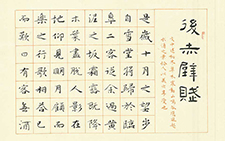 後赤壁賦
是歲十月之望步
自雪堂將歸於臨
皋二客從予過黃
泥之坂霜露既降
木葉盡脫人影在
地仰見明月顧而
樂之行歌相答已
而歎曰有客無酒